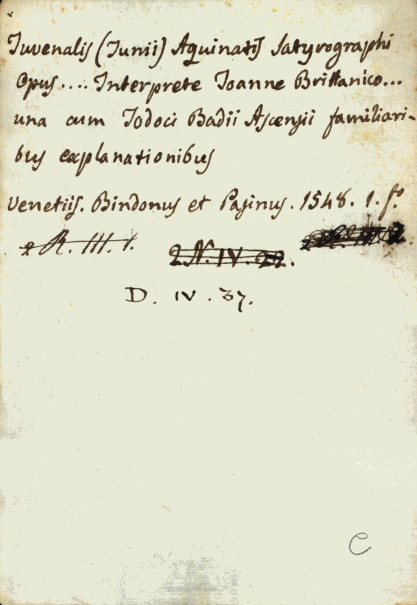 Iuvenalis (Iunii) Aquinatis Satyrographi
Opus.... Interprete Ioanne Brittanico...
una cum Iodoci Badii Ascensii familiari-
bus explanationibus
Venetiis. Bindonus et Pasinus. 1548. 1. fº.
2 R. III. 1.
2 N. IV. 22.
D. IV. 37.
C